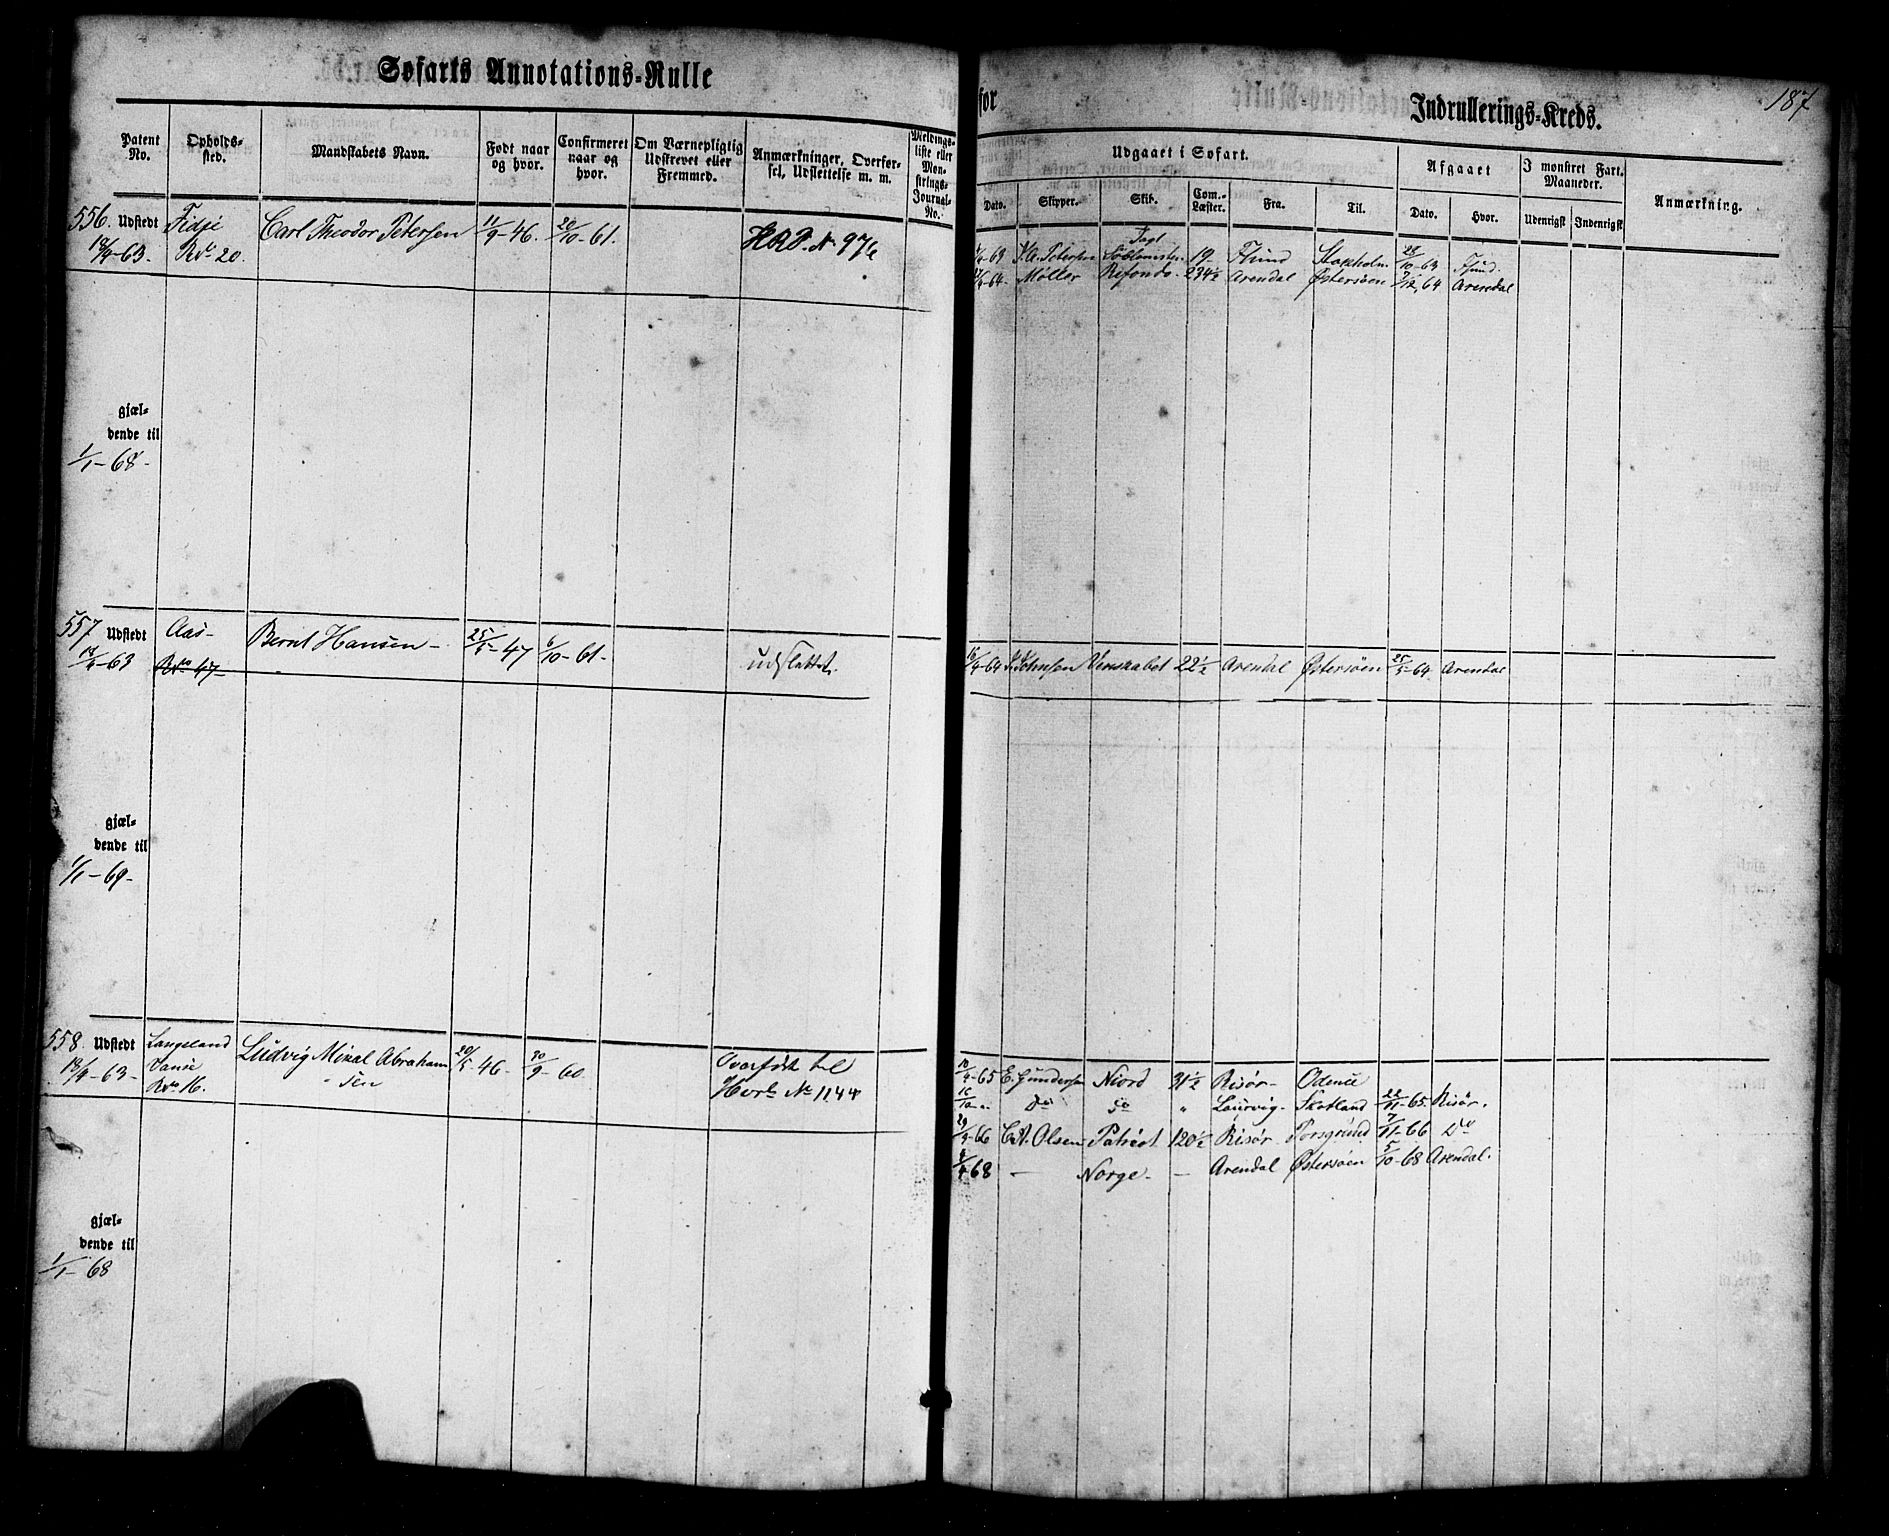 Søfarts Annotations-Rulle
for
Indrullerings-Kreds.
187
Patent No.
Opholds-sted.
Mandskabets Navn.
Født naar og hvor.
Confirmeret naar og hvor.
Om Værnepligtig Udskrevet eller Fremmed.
Anmærkninger, Overførsel, Udslettelse m. m.
Meldingsliste eller Mønstrings-Journal-No.
Udgaaet i Søfart.
Dato.
Skipper.
Skib.
Com.-Læster.
Fra.
Til.
Afgaaet
Dato.
Hvor.
I mønstret Fart. Maaneder.
Udenrigst
Indenrigst
Anmærkning.
556. Udstedt Fidje Carl Theodor Petersen 11/9-46. 20/10-61. H.R.P. No 976
18/4-63. R No 20.
-63 Petersen Jagt 19- Stokholm 28/10-63
-64. Møller 234½ Arendal Østersøen /12 64 Arendal
gjæl-
dende til
1/1-68-
557 Udstedt Aas- Bernt Hansen- 25/5-47 6/10-61- udslettet.
18/4-63 R No 47-
16/4-64 Johnsen Venskabet 22½ Arendal Østersøen 25/5-64. Arendal
gjæl-
dende til
1/1-69-
558. Udstedt Langeland Ludvig Mikal Abraham 20/5-46- 30/9-60. Overført til
18/4-63- Vanse sen Hovr. No 1144
R No 16.
10/4-65 E. Gundersen Niord 31½ Risør- Odense
16/10-" Do Do " Laurvig- Skotland 22/11-65. Risør.
29/3-66 Olsen Patriot 120½ Risør Porsgrund 7/11-66 Do
/4-68 - Norge- - Arendal Østersøen 5/10-68 Arendal.
gjæl-
dende til
1/1-68